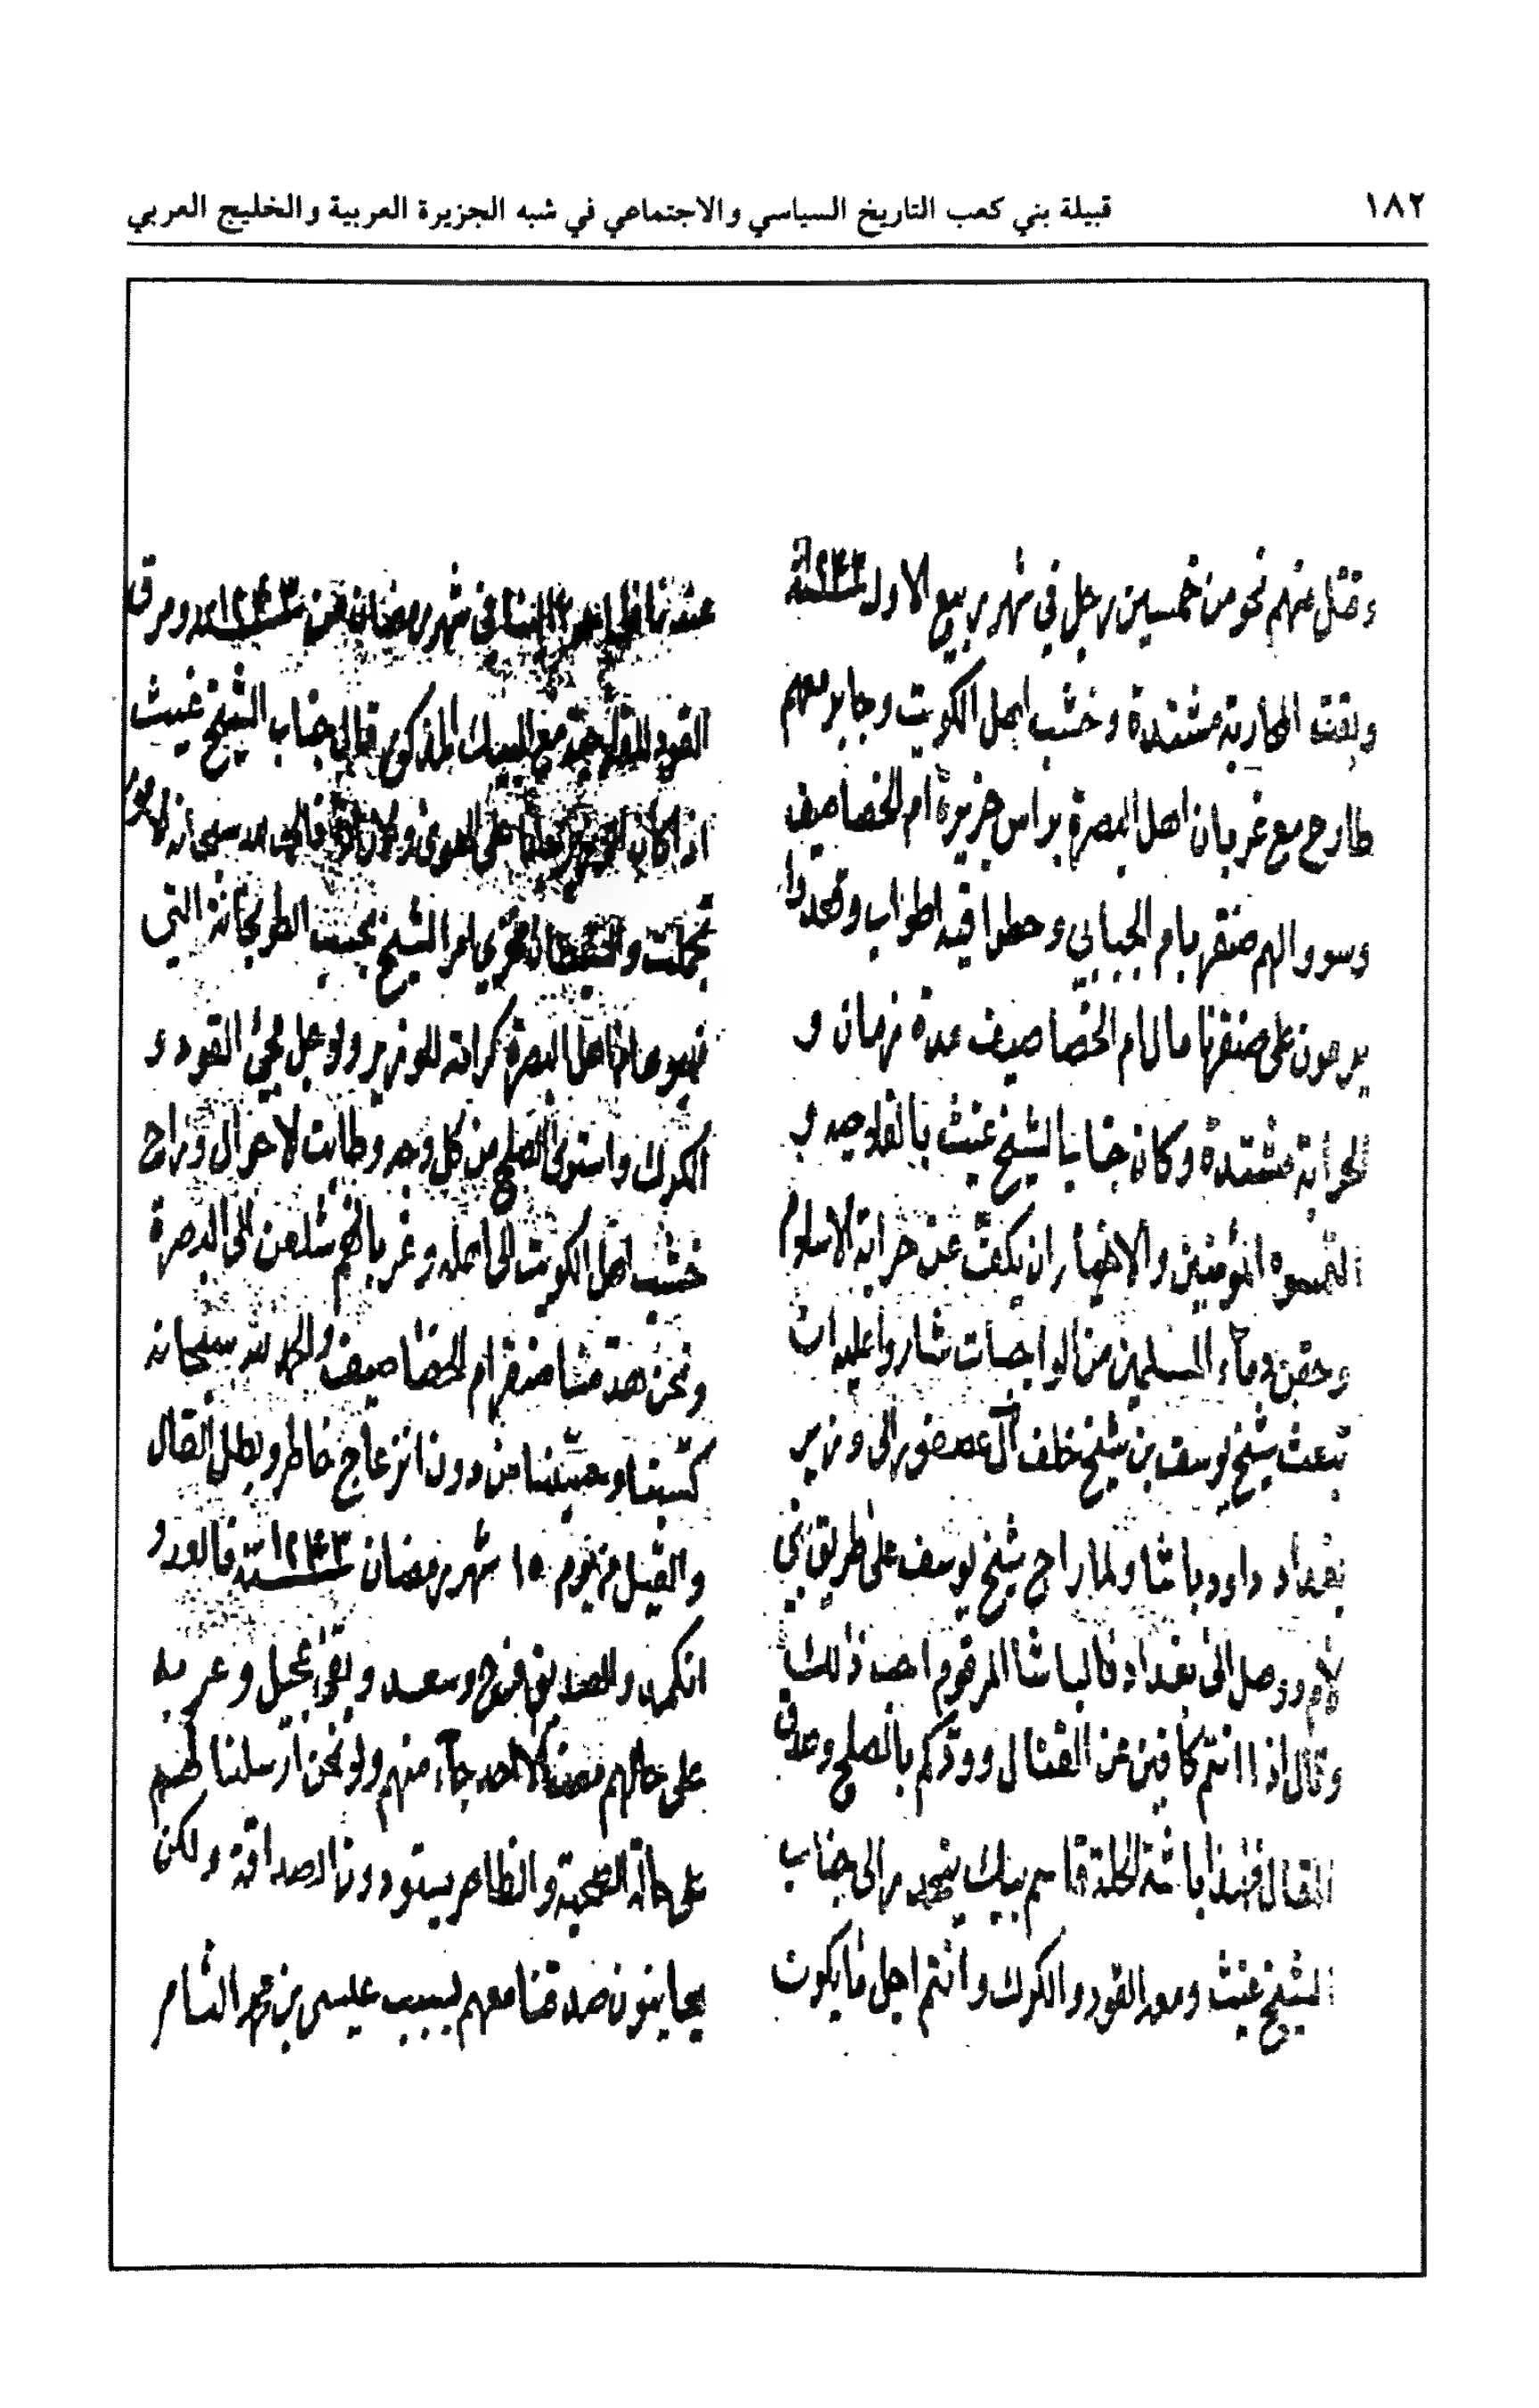 ١٨٢
قبيلة بني كعب التاريخ السياسي والاجتماعي في شبه الجزيرة العربية والخليج العربي
وقتل منهم نحو من خمسين رجل في شهر ربيع الاول
وبقت المحاربة مشتدة وخشب اهل الكويت وجابر معهم
طارح مع غربان اهل البصرة براس جزيرة ام الخصاصيف
وسووا لهم صنقر بام الجبابي وحطوا فيه اطواب وقعدوا
يرمون على صنقرنا مال ام الخصاصيف عدة زمان و
الحرابة مشتدة وكان جناب الشيخ غيث بالفلاحيه و
المؤمنين والاخيار ان يكف عن حرابة الاسلام
وحقن دماء المسلمين من الواجبات شاروا عليه ان
تبعث شيخ يوسف بن شيخ خلف آل عصفور الى وزير
بغداد داود باشا ولما راح شيخ يوسف على طريق بني
لام ووصل الى بغداد فالباشا المرقوم احب ذلك
وقال اذا انتم كافين عن القتال وودكم بالصلح وعدق
القتال فهذا باشة الحلة قاسم بيك ينحدر الى جناب
الشيخ غيث ومعه القود والكرك وانتم اجل ما يكون
عندنا في شهر رمضان ومرق
القود مع البيك المذكور قال جناب الشيخ غيث
اذا كان سبحانه الامور
تجملت لامر الشيخ بجيب الطربخانة التي
اهل البصرة كرامة للوزير ولوجل مجئ القود و
الكرك واستوى الصلح من كل وجه وطابت لاحوال وراح
خشب اهل الكويت الى اهله وغربانهم شلعن الى البصرة
ونحن هدمنا صنقر ام الخصاصيف والحمد لله سبحانه
من دون انزعاج خاطر وبطل القتال
والقيل من يوم ١٥ شهر رمضان سنة ١٢٤٣ فالعدو
انكمد والصديق فرح وسعد وبقوا عجيل وعربه
على حالهم احد جاء منهم ولو نحن ارسلنا لهم
على حالة الصحبة والظاهر يبتودون الصداقة ولكن
يجانبون صدقنا معهم لسبب عليسى بن محمد الشامر